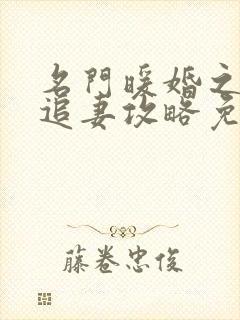 名門暖婚之
追妻攻略免
藤卷忠俊